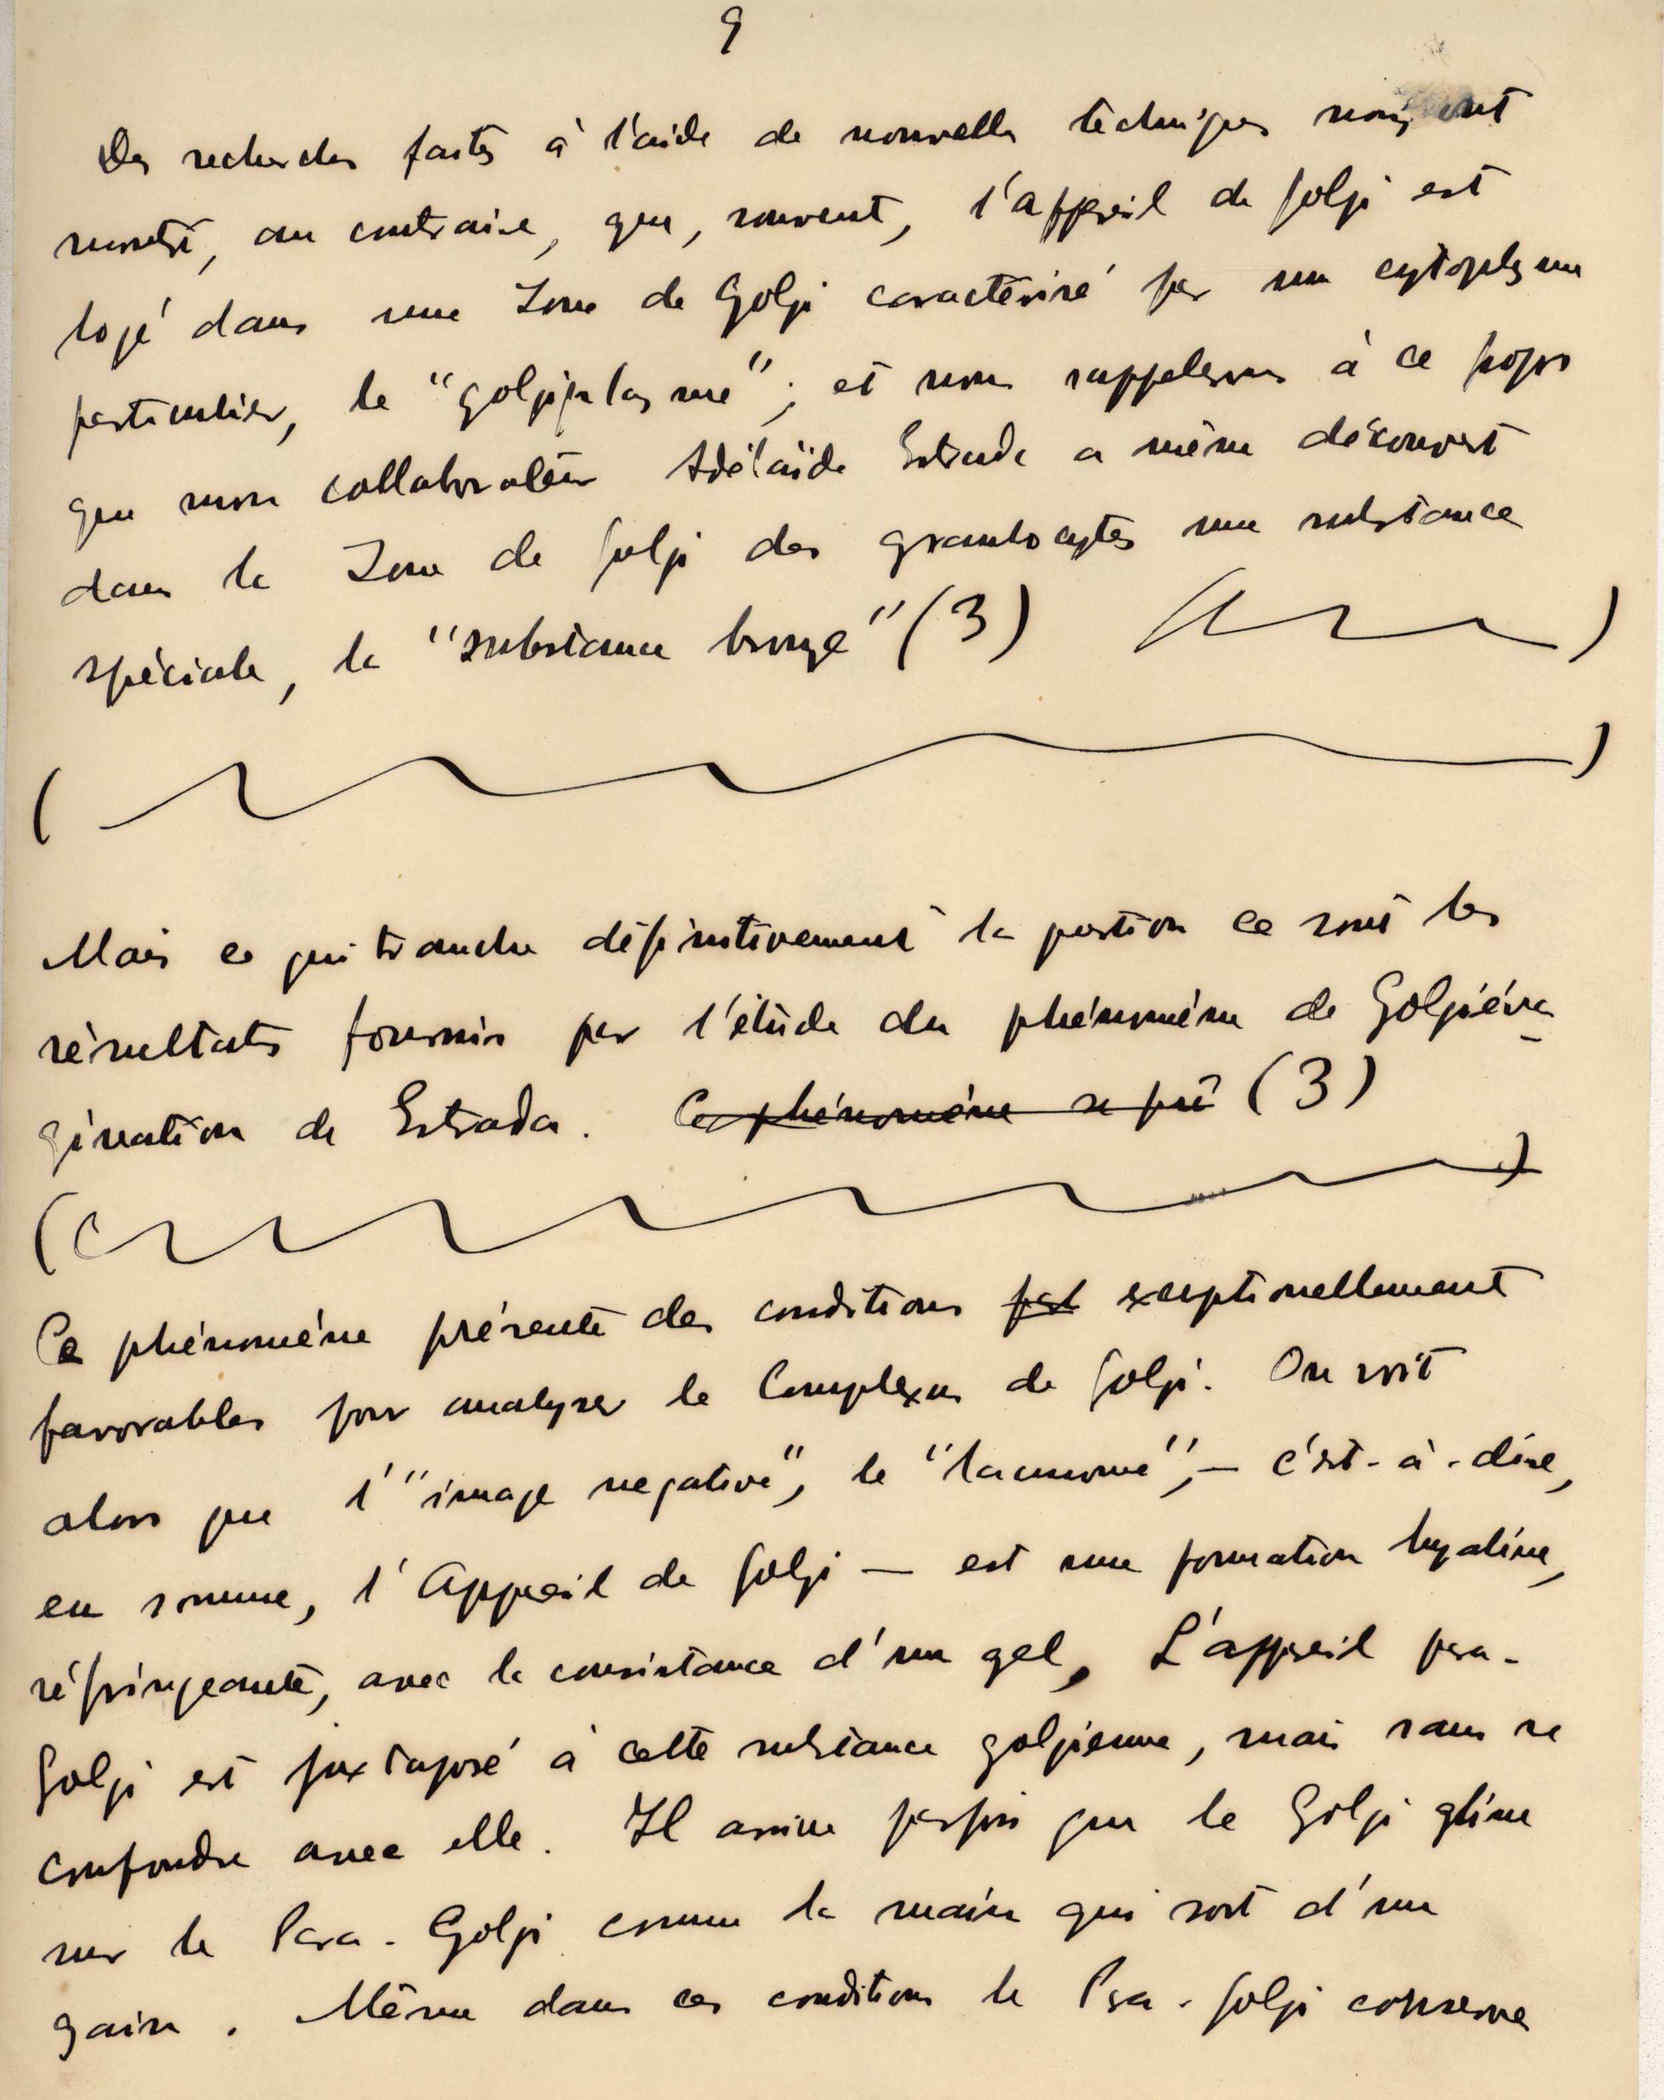 9
Des recherches faites à l'aide de nouvelles techniques nous ont
montré, au contraire, que, souvent, l'appareil de Golgi est
logé dans une Zone de Golgi caractérisé par un cytoplasme
particulier, le "golgiplasme"; et nous rappelerons à ce propos
que mon collaborateur Adélaïde Estrada a même découvert
dans la Zone de Golgi des granulocytes une substance
spéciale, la "substance bronze" (3)
Mais ce qui tranche définitivement la question ce sont les
résultats fournis par l'étude du phénomène de Golgiéva-
gination de Estrada. Ce phénomène se pré (3)
Ce phénomène présente des conditions exceptionellement
favorables pour analyser le Complexus de Golgi. On voit
alors que l'"image negative", le "lacunome", — c'est-à-dire,
en somme, l'Appareil de Golgi — est une formation hyaline,
réfringeante, avec la consistance d'un gel. L'appareil para-
Golgi est juxtaposé à cette substance golgienne, mais sans se
confondre avec elle. Il arrive parfois que le Golgi glisse
sur le Para-Golgi comme la main qui sort d'un
gain. Même dans ces conditions le Para-Golgi conserve